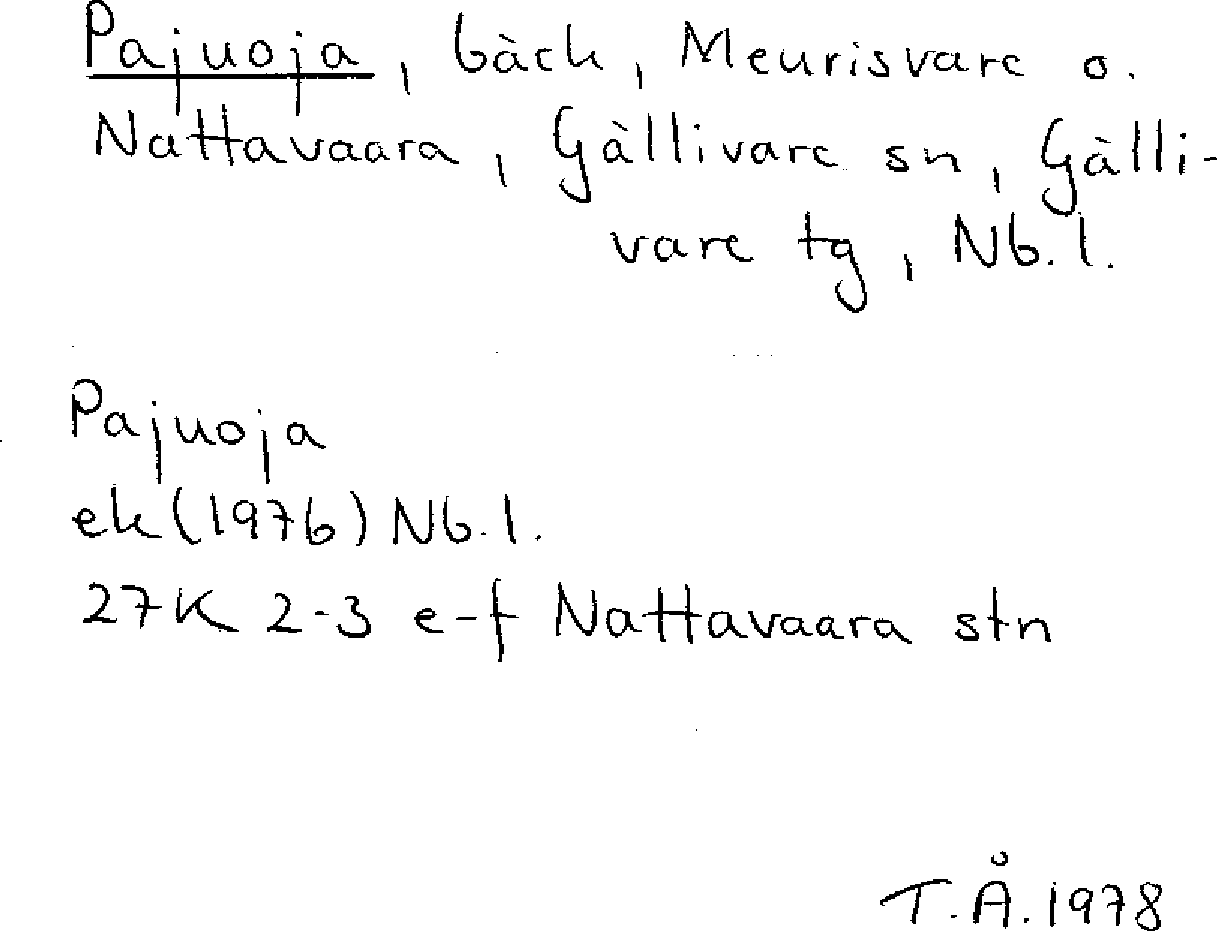 Pajuoja, bäck, Meurisvare o.
Nattavaara, Gällivare sn, Gälli-
vare tg, Nb.l.
Pajuoja
ek(1976) Nb.l.
27K 2-3 e-f Nattavaara stn
T.Å.1978